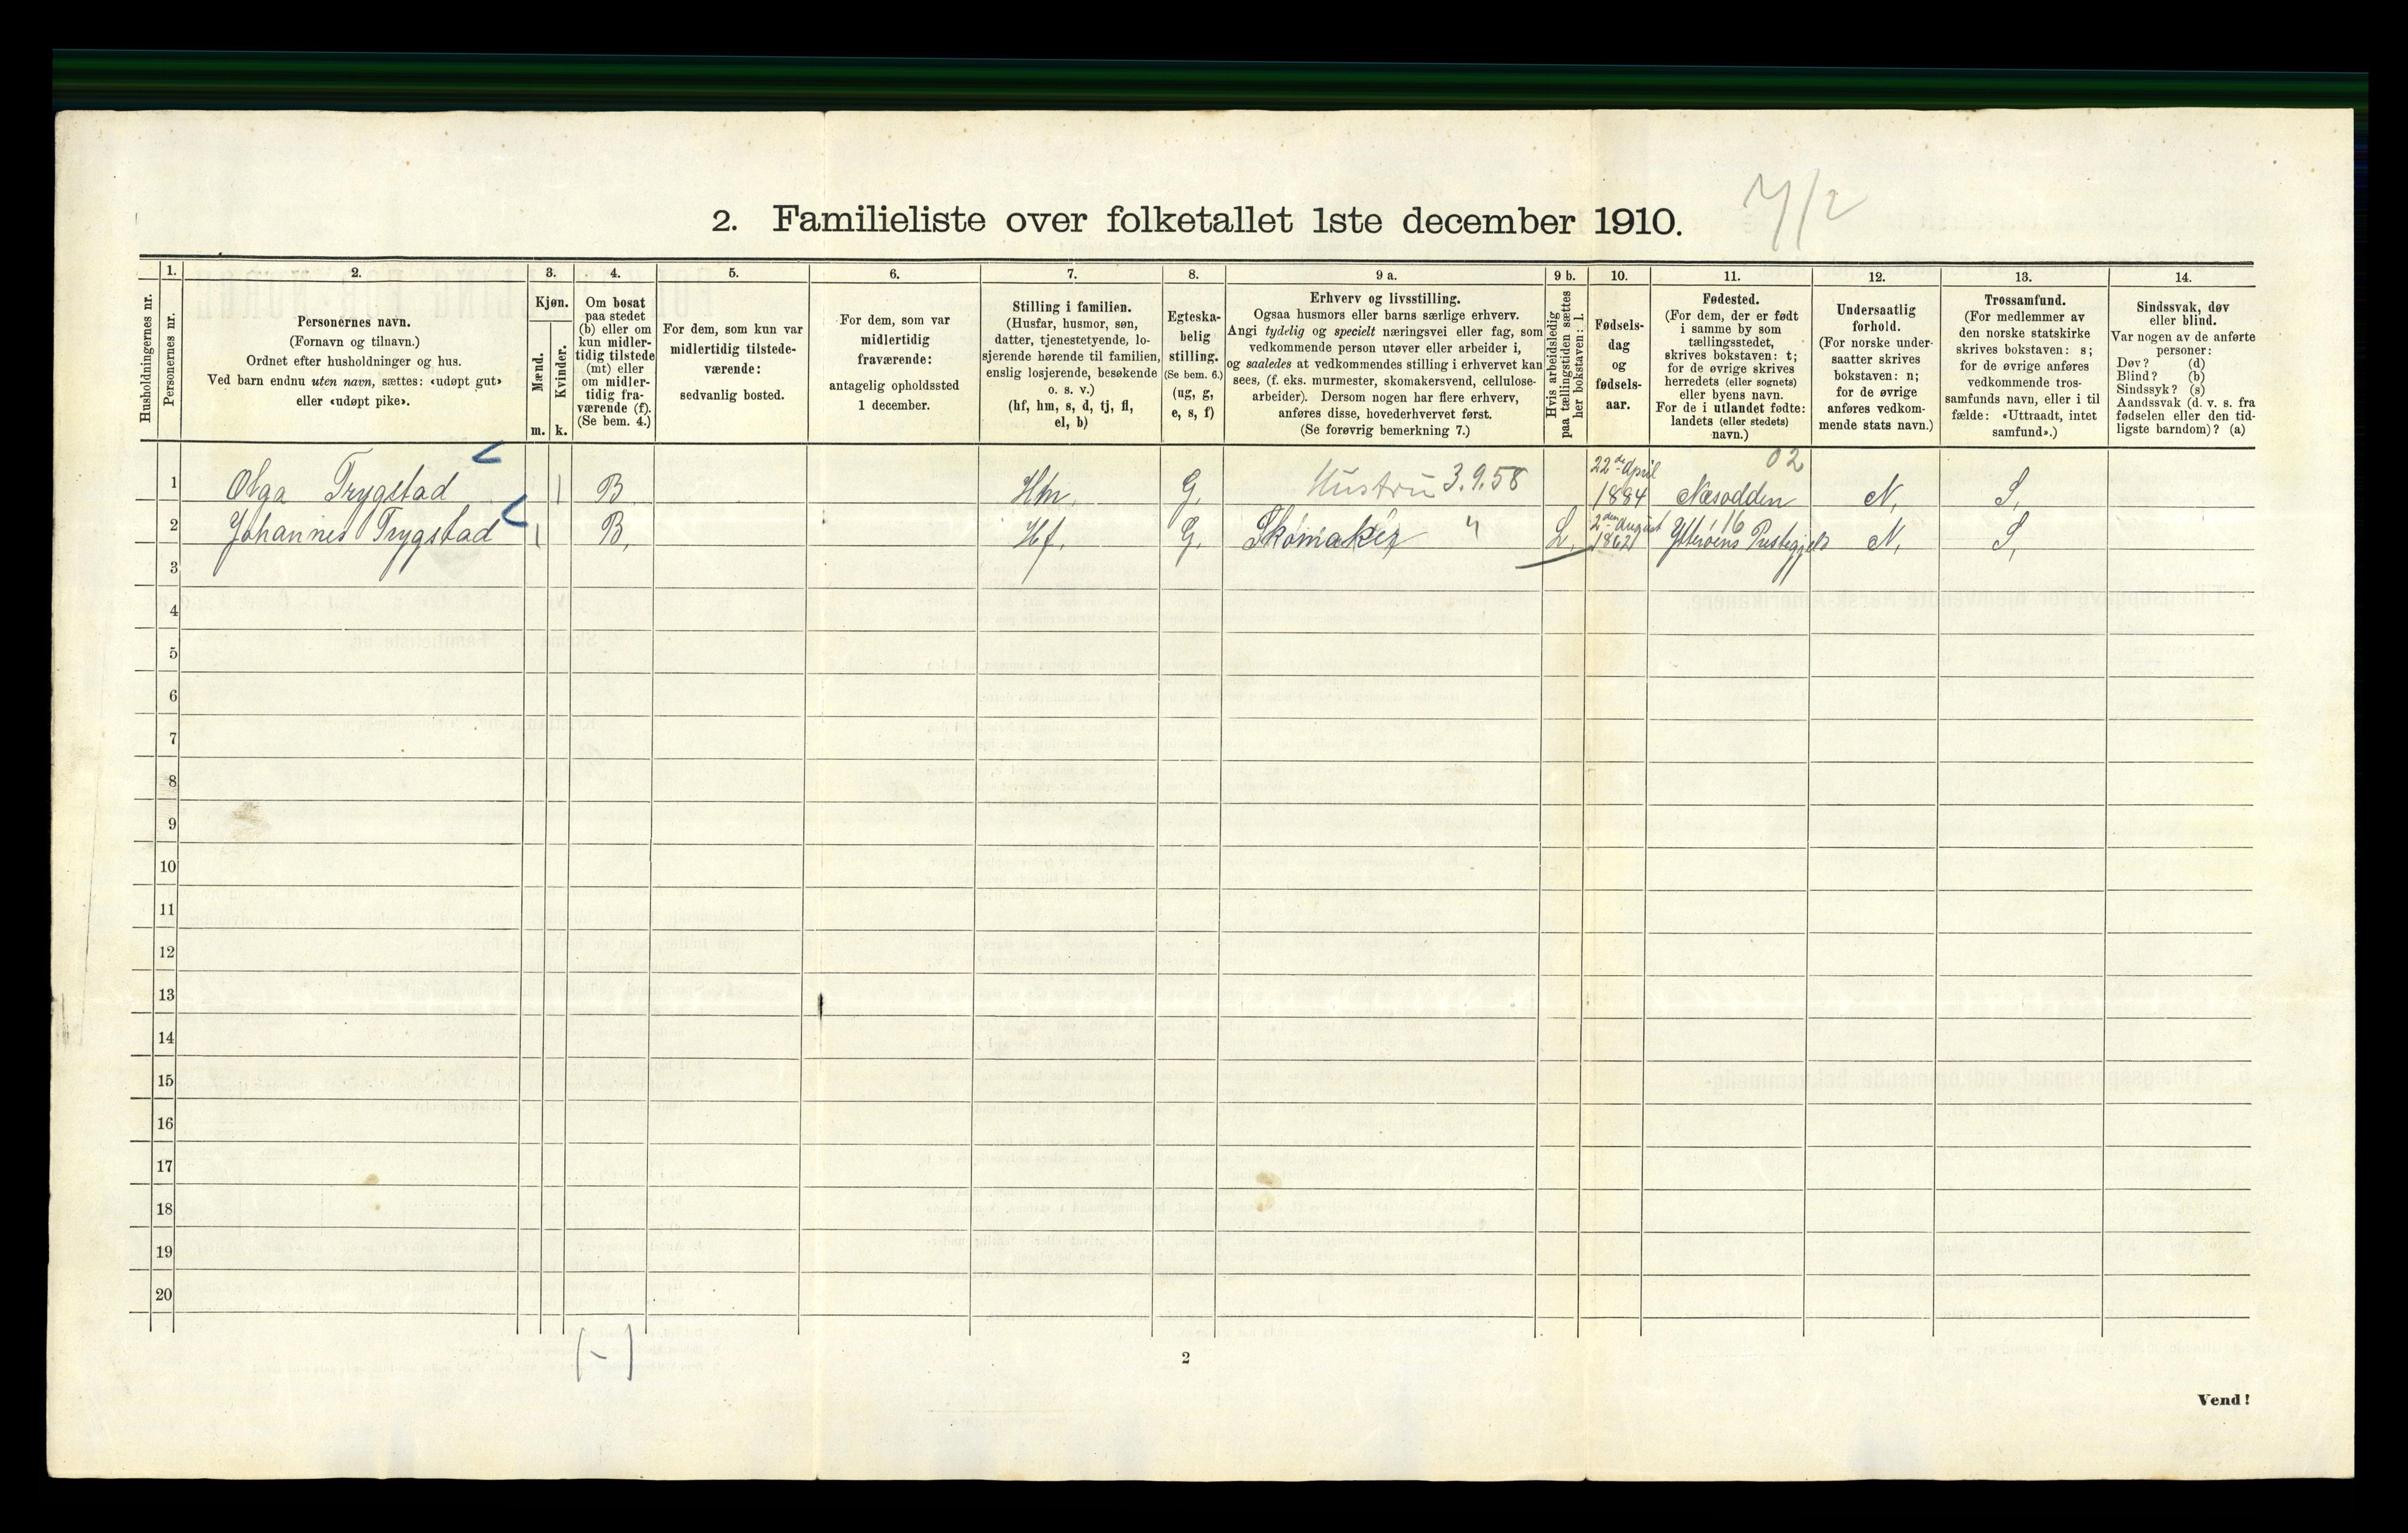 2. Familieliste over folketallet 1ste december 1910.
7/2
Husholdningernes nr.
1.
Personernes nr.
2.
Personernes navn.
(Fornavn og tilnavn.)
Ordnet efter husholdninger og hus.
Ved barn endnu uten navn, sættes: «udøpt gut»
eller «udøpt pike».
3.
Kjøn.
Mænd.
m.
Kvinder.
k.
4.
Om bosat
paa stedet
(b) eller om
kun midler-
tidig tilstede
(mt) eller
om midler-
tidig fra-
værende (f).
(Se bem. 4.)
5.
For dem, som kun var
midlertidig tilstede-
værende:
sedvanlig bosted.
6.
For dem, som var
midlertidig
fraværende:
antagelig opholdssted
1 december.
7.
Stilling i familien.
(Husfar, husmor, søn,
datter, tjenestetyende, lo-
sjerende hørende til familien,
enslig losjerende, besøkende
o. s. v.)
(hf, hm, s, d, tj, fl,
el, b)
8.
Egteska-
belig
stilling.
(Se bem. 6.)
(ug, g,
e, s, f)
9 a.
Erhverv og livsstilling.
Ogsaa husmors eller barns særlige erhverv.
Angi tydelig og specielt næringsvei eller fag, som
vedkommende person utøver eller arbeider i,
og saaledes at vedkommendes stilling i erhvervet kan
sees, (f. eks. murmester, skomakersvend, cellulose-
arbeider). Dersom nogen har flere erhverv,
anføres disse, hovederhvervet først.
(Se forøvrig bemerkning 7.)
9 b.
Hvis arbeidsledig
paa tællingstiden sættes
her bokstaven: l.
10.
Fødsels-
dag
og
fødsels-
aar.
11.
Fødested.
(For dem, der er født
i samme by som
tællingsstedet,
skrives bokstaven: t;
for de øvrige skrives
herredets (eller sognets)
eller byens navn.
For de i utlandet fødte:
landets (eller stedets)
navn.)
12.
Undersaatlig
forhold.
(For norske under-
saatter skrives
bokstaven: n;
for de øvrige
anføres vedkom-
mende stats navn.)
13.
Trossamfund.
(For medlemmer av
den norske statskirke
skrives bokstaven: s;
for de øvrige anføres
vedkommende tros-
samfunds navn, eller i til
fælde: «Uttraadt, intet
samfund».)
14.
Sindssvak, døv
eller blind.
Var nogen av de anførte
personer:
Døv? (d)
Blind? (b)
Sindssyk? (s)
Aandssvak (d. v. s. fra
fødselen eller den tid-
ligste barndom)? (a)
1 Olga Trygstad 1 B. Hm. G. Hustru 3.9.58 22de April 1884 02 Næsodden N. S.
2 Johannes Trygstad 1 B. Hf. G. Skomaker " L. 2den August 1862 16 Ytterøens Prestegjeld N. S.
3
4
5
6
7
8
9
10
11
12
13
14
15
16
17
18
19
20
(-)
2
Vend!